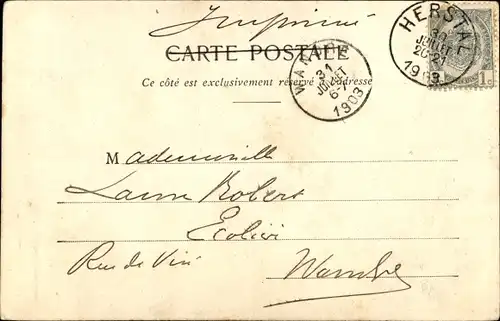 Imprimé
CARTE POSTALE
Ce côté est exclusivement réservé à l'adresse
HERSTAL
30
JUILLET
20-21
1903
1 C
WANDRE
31
JUILLET
6-7
1903
Mademoiselle
Laure Robert
Rue de
Wandre